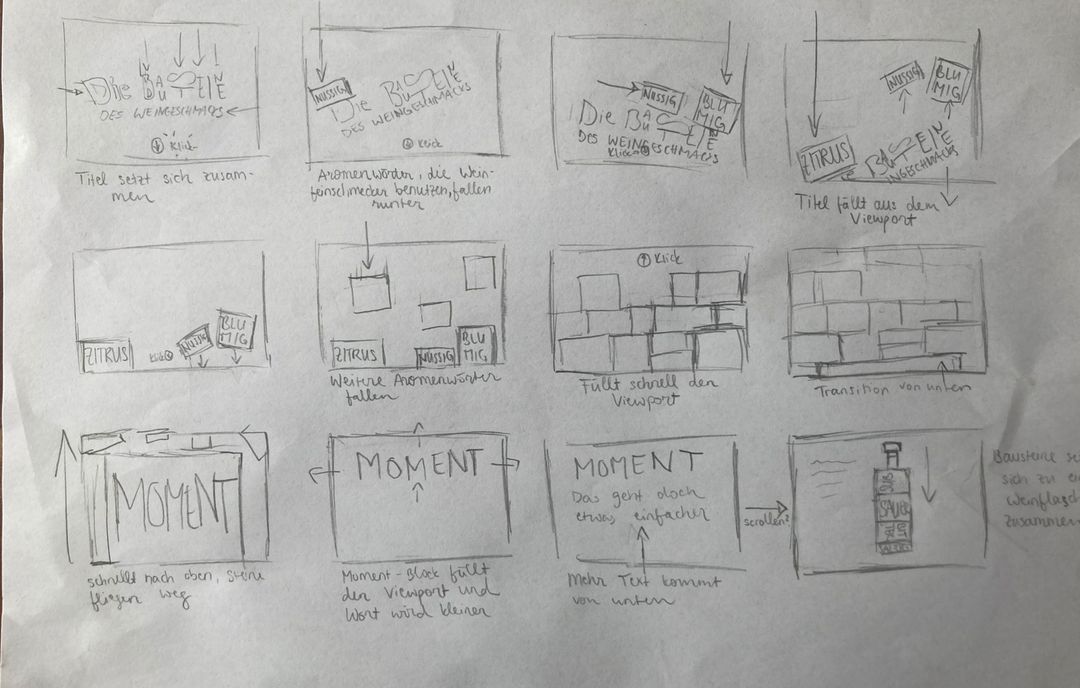 Die BAUSTEINE
DES WEINGESCHMACKS
Klick
Titel setzt sich zusam-
men
NUSSIG
Die BAUSTEINE
DES WEINGESCHMACKS
Klick
Aromenwörter, die Wein-
feinschmecker benutzen, fallen
runter
NUSSIG
BLU
MIG
Die BAUSTEINE
DES WEINGESCHMACKS
Klick
NUSSIG
BLU
MIG
ZITRUS
BAUSTEINE
INGESCHMACKS
Titel fällt aus dem
Viewport
ZITRUS
Klick
NUSSIG
BLU
MIG
ZITRUS
NUSSIG
BLU
MIG
Weitere Aromenwörter
fallen
Klick
Füllt schnell den
Viewport
Transition von unten
MOMENT
schnellt nach oben, Steine
fliegen weg
MOMENT
Moment-Block füllt
den Viewport und
Wort wird kleiner
MOMENT
Das geht doch
etwas einfacher
Mehr Text kommt
von unten
scrollen?
SÜß
SAUER
Bausteine se
sich zu ei
Weinflasch
zusammen